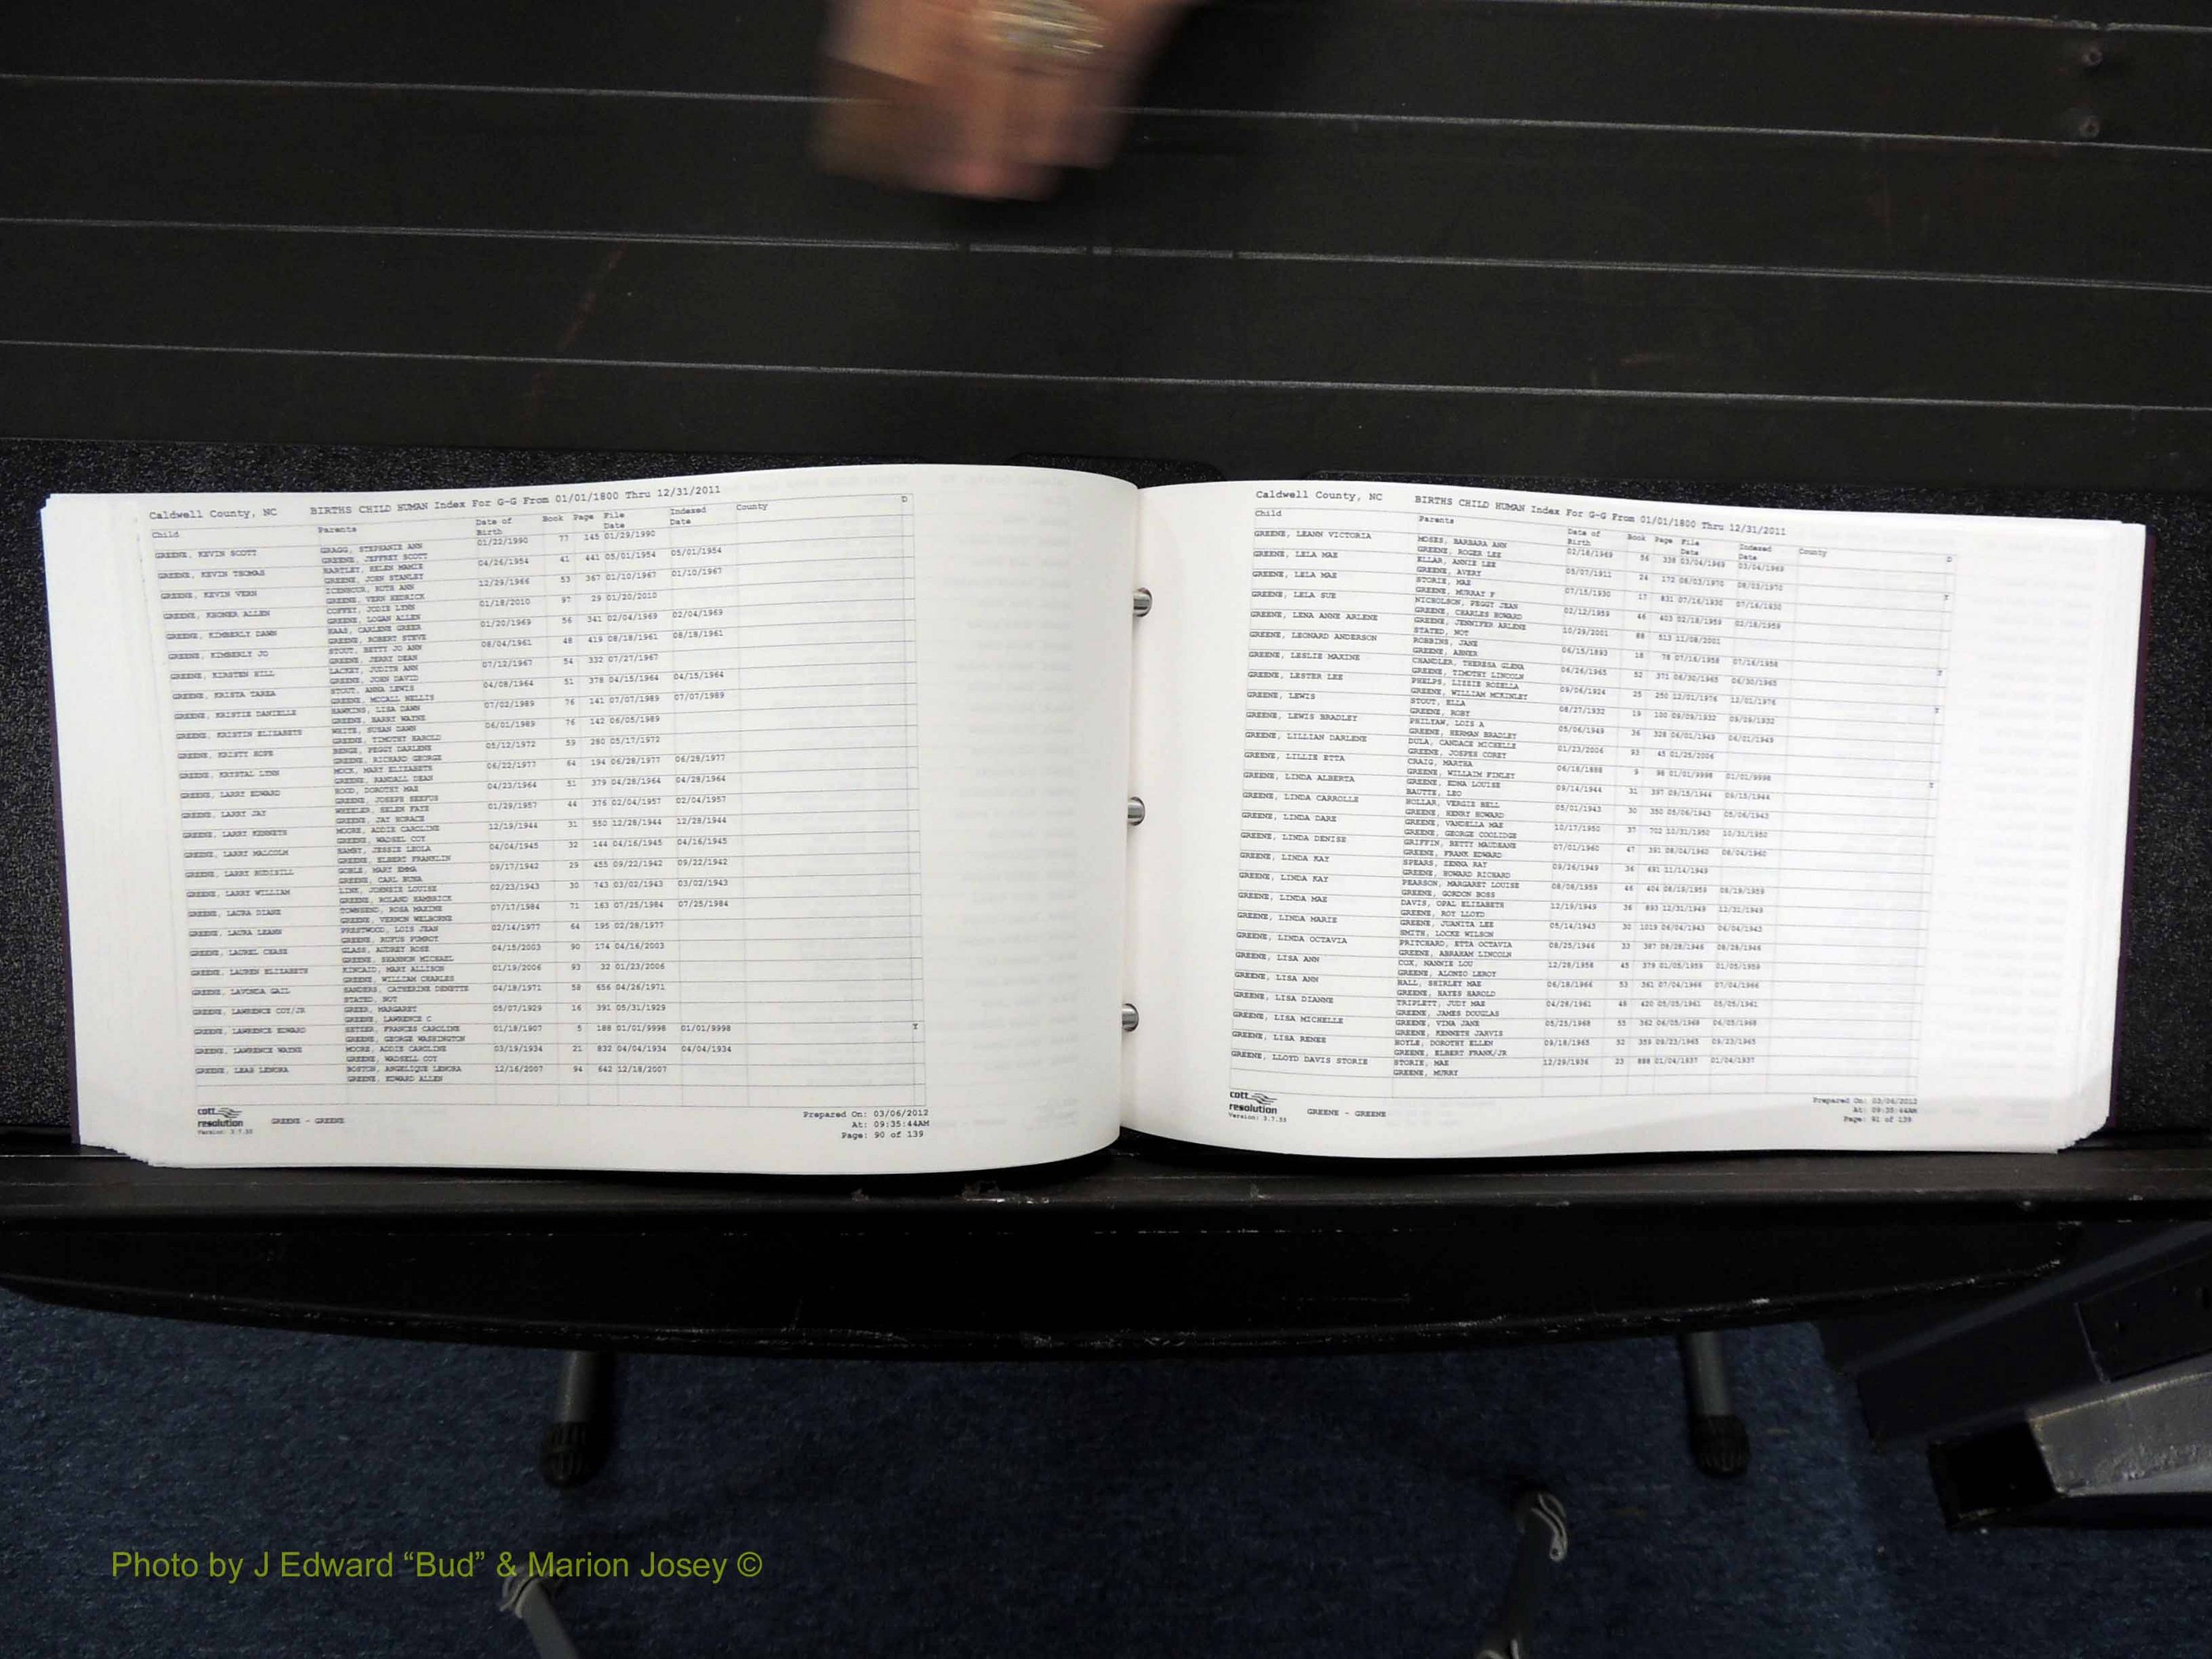 Caldwell County, NC BIRTHS CHILD HUMAN Index For G-G From 01/01/1800 Thru 12/31/2011
Child Parents Date of Birth Book Page File Date Indexed Date County D
GREENE, KEVIN SCOTT GRAGG, STEPHANIE ANN 01/22/1990 77 145 01/29/1990
GREENE, JEFFREY SCOTT
GREENE, KEVIN THOMAS HARTLEY, HELEN MAMIE 04/26/1954 41 441 05/01/1954 05/01/1954
GREENE, JOHN STANLEY
GREENE, KEVIN VERN ICENHOUR, RUTH ANN 12/29/1966 53 367 01/10/1967 01/10/1967
GREENE, VERN HEDRICK
GREENE, KHONER ALLEN COFFEY, JODIE LYNN 01/18/2010 97 29 01/20/2010
GREENE, LOGAN ALLEN
GREENE, KIMBERLY DAWN HAAS, CARLENE GREER 01/20/1969 56 341 02/04/1969 02/04/1969
GREENE, ROBERT STEVE
GREENE, KIMBERLY JO STOUT, BETTY JO ANN 08/04/1961 48 419 08/18/1961 08/18/1961
GREENE, JERRY DEAN
GREENE, KIRSTEN HILL LACKEY, JUDITH ANN 07/12/1967 54 332 07/27/1967
GREENE, JOHN DAVID
GREENE, KRISTA TAREA STOUT, ANNA LEWIS 04/08/1964 51 378 04/15/1964 04/15/1964
GREENE, MCCALL NELLIS
GREENE, KRISTIE DANIELLE HAWKINS, LISA DAWN 07/02/1989 76 141 07/07/1989 07/07/1989
GREENE, HARRY WAYNE
GREENE, KRISTIN ELIZABETH WHITE, SUSAN DAWN 06/01/1989 76 142 06/05/1989
GREENE, TIMOTHY HAROLD
GREENE, KRISTY HOPE BENGE, PEGGY DARLENE 05/12/1972 59 280 05/17/1972
GREENE, RICHARD GEORGE
GREENE, KRYSTAL LYNN MOCK, MARY ELIZABETH 06/22/1977 64 194 06/28/1977 06/28/1977
GREENE, RANDALL DEAN
GREENE, LARRY EDWARD HOOD, DOROTHY MAE 04/23/1964 51 379 04/28/1964 04/28/1964
GREENE, JOSEPH
GREENE, LARRY JAY WHEELER, HELEN FAYE 01/29/1957 44 376 02/04/1957 02/04/1957
GREENE, JAY HORACE
GREENE, LARRY KENNETH MOORE, ADDIE CAROLINE 12/19/1944 31 550 12/28/1944 12/28/1944
GREENE, WADSEL COY
GREENE, LARRY MALCOLM HAMBY, JESSIE LEOLA 04/04/1945 32 144 04/16/1945 04/16/1945
GREENE, ELBERT FRANKLIN
GREENE, LARRY RUDISILL GOBLE, MARY EMMA 09/17/1942 29 455 09/22/1942 09/22/1942
GREENE, CARL
GREENE, LARRY WILLIAM LINK, JOHNSIE LOUISE 02/23/1943 30 743 03/02/1943 03/02/1943
GREENE, ROLAND HAMBRICK
GREENE, LAURA DIANE TOWNSEND, ROSA MAXINE 07/17/1984 71 163 07/25/1984 07/25/1984
GREENE, VERNON WELBORNE
GREENE, LAURA LEANN PRESTWOOD, LOIS JEAN 02/14/1977 64 195 02/28/1977
GREENE, RUFUS PUMROY
GREENE, LAUREL CHASE GLASS, AUDREY ROSE 04/15/2003 90 174 04/16/2003
GREENE, SHANNON MICHAEL
GREENE, LAUREN ELIZABETH KINCAID, MARY ALLISON 01/19/2006 93 32 01/23/2006
GREENE, WILLIAM CHARLES
GREENE, LAVONDA GAIL SANDERS, CATHERINE DENETTE 04/18/1971 58 656 04/26/1971
STATED, NOT
GREENE, LAWRENCE COY/JR GREER, MARGARET 05/07/1929 16 391 05/31/1929
GREENE, LAWRENCE C
GREENE, LAWRENCE EDWARD HETZER, FRANCES CAROLINE 01/18/1907 5 188 01/01/9998 01/01/9998 Y
GREENE, GEORGE WASHINGTON
GREENE, LAWRENCE WAYNE MOORE, ADDIE CAROLINE 03/19/1934 21 832 04/04/1934 04/04/1934
GREENE, WADSELL COY
GREENE, LEAH LENORA BOSTON, ANGELIQUE LENORA 12/16/2007 94 642 12/18/2007
GREENE, EDWARD ALLEN
cott resolution
Version: 3.7.33
GREENE - GREENE
Prepared On: 03/06/2012
At: 09:35:44AM
Page: 90 of 139
Caldwell County, NC BIRTHS CHILD HUMAN Index For G-G From 01/01/1800 Thru 12/31/2011
Child Parents Date of Birth Book Page File Date Indexed Date County D
GREENE, LEANN VICTORIA MOSES, BARBARA ANN 02/18/1969 56 338 03/04/1969 03/04/1969
GREENE, ROGER LEE
GREENE, LELA MAE ELLAR, ANNIE LEE 05/07/1911 24 172 08/03/1970 08/03/1970 Y
GREENE, AVERY
GREENE, LELA MAE STORIE, MAE 07/15/1930 17 831 07/16/1930 07/16/1930
GREENE, MURRAY F
GREENE, LELA SUE NICHOLSON, PEGGY JEAN 02/12/1959 46 403 02/18/1959 02/18/1959
GREENE, CHARLES HOWARD
GREENE, LENA ANNE ARLENE GREENE, JENNIFER ARLENE 10/29/2001 88 513 11/08/2001
STATED, NOT
GREENE, LEONARD ANDERSON ROBBINS, JANE 06/15/1893 18 78 07/16/1958 07/16/1958 Y
GREENE, ABNER
GREENE, LESLIE MAXINE CHANDLER, THERESA GLENA 06/26/1965 52 371 06/30/1965 06/30/1965
GREENE, TIMOTHY LINCOLN
GREENE, LESTER LEE PHELPS, LIZZIE ROZELLA 09/06/1924 25 250 12/01/1976 12/01/1976 Y
GREENE, WILLIAM MCKINLEY
GREENE, LEWIS STOUT, ELLA 08/27/1932 19 100 09/09/1932 09/09/1932
GREENE, ROBY
GREENE, LEWIS BRADLEY PHILYAW, LOIS A 05/06/1949 36 328 06/01/1949 06/01/1949
GREENE, HERMAN BRADLEY
GREENE, LILLIAN DARLENE DULA, CANDACE MICHELLE 01/23/2006 93 45 01/25/2006
GREENE, JOSPEH COREY
GREENE, LILLIE ETTA CRAIG, MARTHA 06/18/1888 9 98 01/01/9998 01/01/9998 Y
GREENE, WILLAIM FINLEY
GREENE, LINDA ALBERTA GREENE, EDNA LOUISE 09/14/1944 31 397 09/15/1944 09/15/1944
BAUTTE, LEO
GREENE, LINDA CARROLLE HOLLAR, VERGIE BELL 05/01/1943 30 350 05/06/1943 05/06/1943
GREENE, HENRY HOWARD
GREENE, LINDA DARE GREENE, VANDELLA MAE 10/17/1950 37 702 10/31/1950 10/31/1950
GREENE, GEORGE COOLIDGE
GREENE, LINDA DENISE GRIFFIN, BETTY MAUDEANE 07/01/1960 47 391 08/04/1960 08/04/1960
GREENE, FRANK EDWARD
GREENE, LINDA KAY SPEARS, ZENNA RAY 09/26/1949 36 691 11/14/1949
GREENE, HOWARD RICHARD
GREENE, LINDA KAY PEARSON, MARGARET LOUISE 08/08/1959 46 404 08/19/1959 08/19/1959
GREENE, GORDON BOSS
GREENE, LINDA MAE DAVIS, OPAL ELIZABETH 12/19/1949 36 893 12/31/1949 12/31/1949
GREENE, ROY LLOYD
GREENE, LINDA MARIE GREENE, JUANITA LEE 05/14/1943 30 1019 06/04/1943 06/04/1943
SMITH, LOCKE WILSON
GREENE, LINDA OCTAVIA PRITCHARD, ETTA OCTAVIA 08/25/1946 33 387 08/28/1946 08/28/1946
GREENE, ABRAHAM LINCOLN
GREENE, LISA ANN COX, NANNIE LOU 12/28/1958 45 379 01/05/1959 01/05/1959
GREENE, ALONZO LEROY
GREENE, LISA ANN HALL, SHIRLEY MAE 06/18/1966 53 361 07/04/1966 07/04/1966
GREENE, HAYES HAROLD
GREENE, LISA DIANNE TRIPLETT, JUDY MAE 04/28/1961 48 420 05/05/1961 05/05/1961
GREENE, JAMES DOUGLAS
GREENE, LISA MICHELLE GREENE, VINA JANE 05/25/1968 55 362 06/05/1968 06/05/1968
GREENE, KENNETH JARVIS
GREENE, LISA RENEE HOYLE, DOROTHY ELLEN 09/18/1965 52 359 09/23/1965 09/23/1965
GREENE, ELBERT FRANK/JR
GREENE, LLOYD DAVIS STORIE STORIE, MAE 12/29/1936 23 888 01/04/1937 01/04/1937
GREENE, MURRY
cott resolution
Version: 3.7.33
GREENE - GREENE
Prepared On: 03/06/2012
At: 09:35:44AM
Page: 91 of 139
Photo by J Edward “Bud” & Marion Josey ©